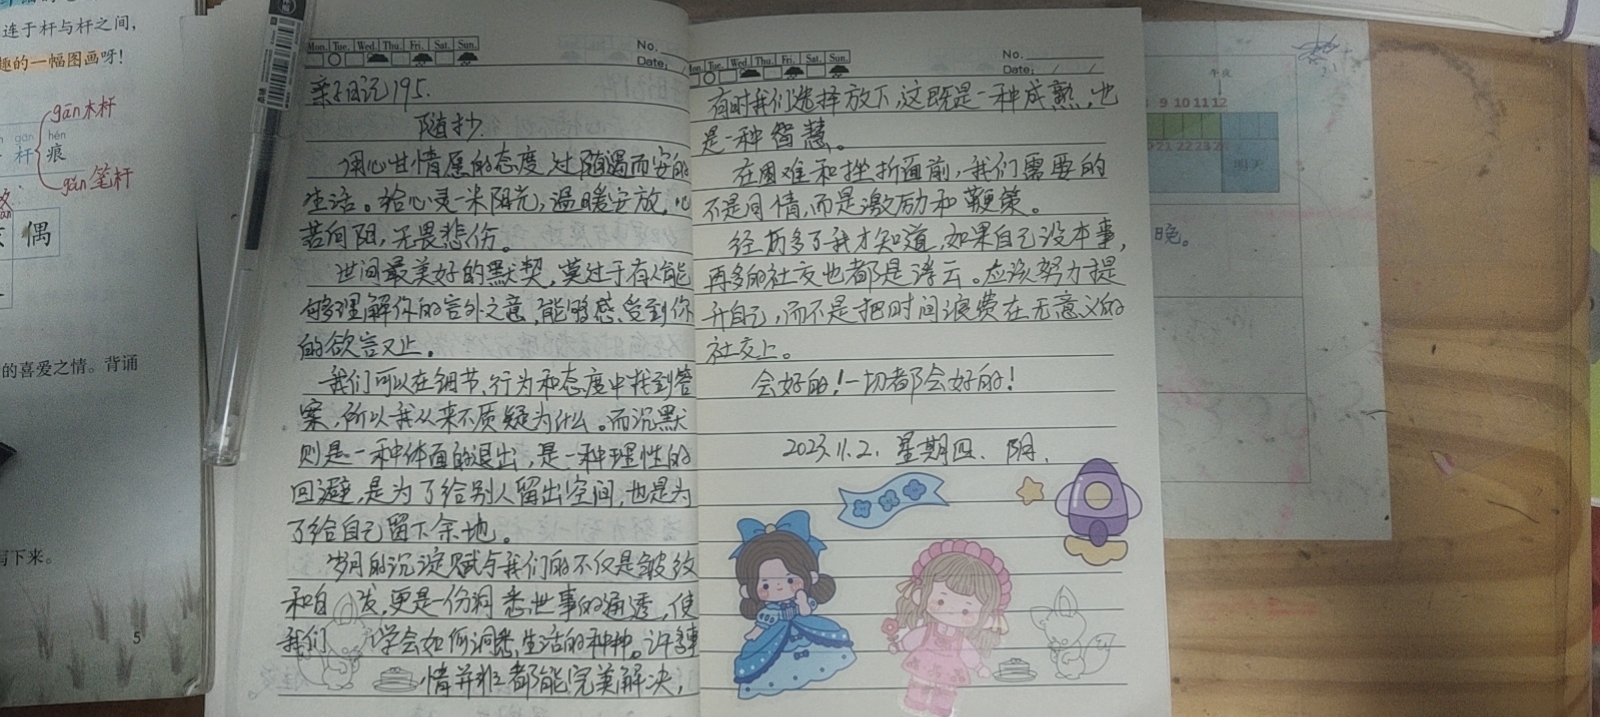 连于杆与杆之间,
趣的一幅图画呀!
gān木杆
gān hén
杆 痕
gǎn笔杆
偶
的喜爱之情。背诵
写下来。
5
Mon. Tue. Wed. Thu. Fri. Sat. Sun.
No.
Date:
亲子日记195.
随抄
用心甘情愿的态度,过随遇而安的
生活。给心灵一米阳光,温暖安放,心
若向阳,无畏悲伤。
世间最美好的默契,莫过于有人能
够理解你的言外之意,能够感受到你
的欲言又止。
我们可以在细节、行为和态度中找到答
案,所以我从来不质疑为什么。而沉默
则是一种体面的退出,是一种理性的
回避,是为了给别人留出空间,也是为
了给自己留下余地。
岁月的沉淀赋与我们的不仅是皱纹
和白发,更是一份洞悉世事的通透,使
我们学会如何洞悉生活的种种。许多事
情并非都能完美解决,
Mon. Tue. Wed. Thu. Fri. Sat. Sun.
No.
Date:
有时我们选择放下,这既是一种成熟,也
是一种智慧。
在困难和挫折面前,我们需要的
不是同情,而是激励和鞭策。
经历多了我才知道,如果自己没本事,
再多的社交也都是浮云。应该努力提
升自己,而不是把时间浪费在无意义的
社交上。
会好的!一切都会好的!
2023.11.2. 星期四. 阴.
午夜
9 10 11 12
21 22 23 24
明天
晚。